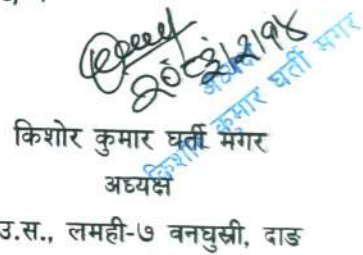 किशोर कुमार घर्ती मगर
अध्यक्ष
किशोर कुमार घर्ती मगर
अध्यक्ष
उ.स., लमही-७ वनघुस्री, दाङ